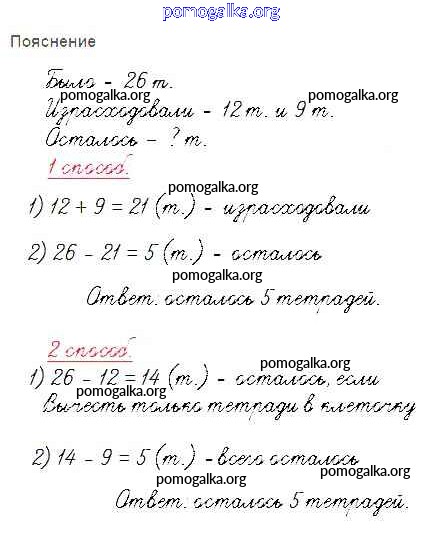 pomogalka.org
Пояснение
Было - 26 т.
pomogalka.org
Израсходовали - 12 т. и 9 т.
pomogalka.org
Осталось - ? т.
1 способ.
pomogalka.org
1) 12 + 9 = 21 (т.) - израсходовали
2) 26 - 21 = 5 (т.) - осталось
pomogalka.org
Ответ: осталось 5 тетрадей.
2 способ.
pomogalka.org
1) 26 - 12 = 14 (т.) - осталось, если
pomogalka.org
Вычесть только тетради в клеточку
2) 14 - 9 = 5 (т.) - всего осталось
pomogalka.org
pomogalka.org
Ответ: осталось 5 тетрадей.